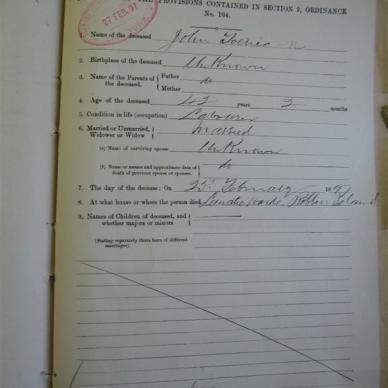 THE PROVISIONS CONTAINED IN SECTION 9, ORDINANCE
No. 104.
27 FEB. 97
1. Name of the deceased John
2. Birthplace of the deceased UnKnown
3. Name of the Parents of the deceased. Father do
Mother
4. Age of the deceased 42 years 3 months
5. Condition in life (occupation) Labourer
6. Married or Unmarried, Widower or Widow married
(a) Name of surviving spouse UnKnown
(b) Name or names and approximate date of death of previous spouse or spouses. do
7. The day of the decease: On February 189
8. At what house or where the person died Robben Island
9. Names of Children of deceased, and whether majors or minors
(Stating separately those born of different marriages).